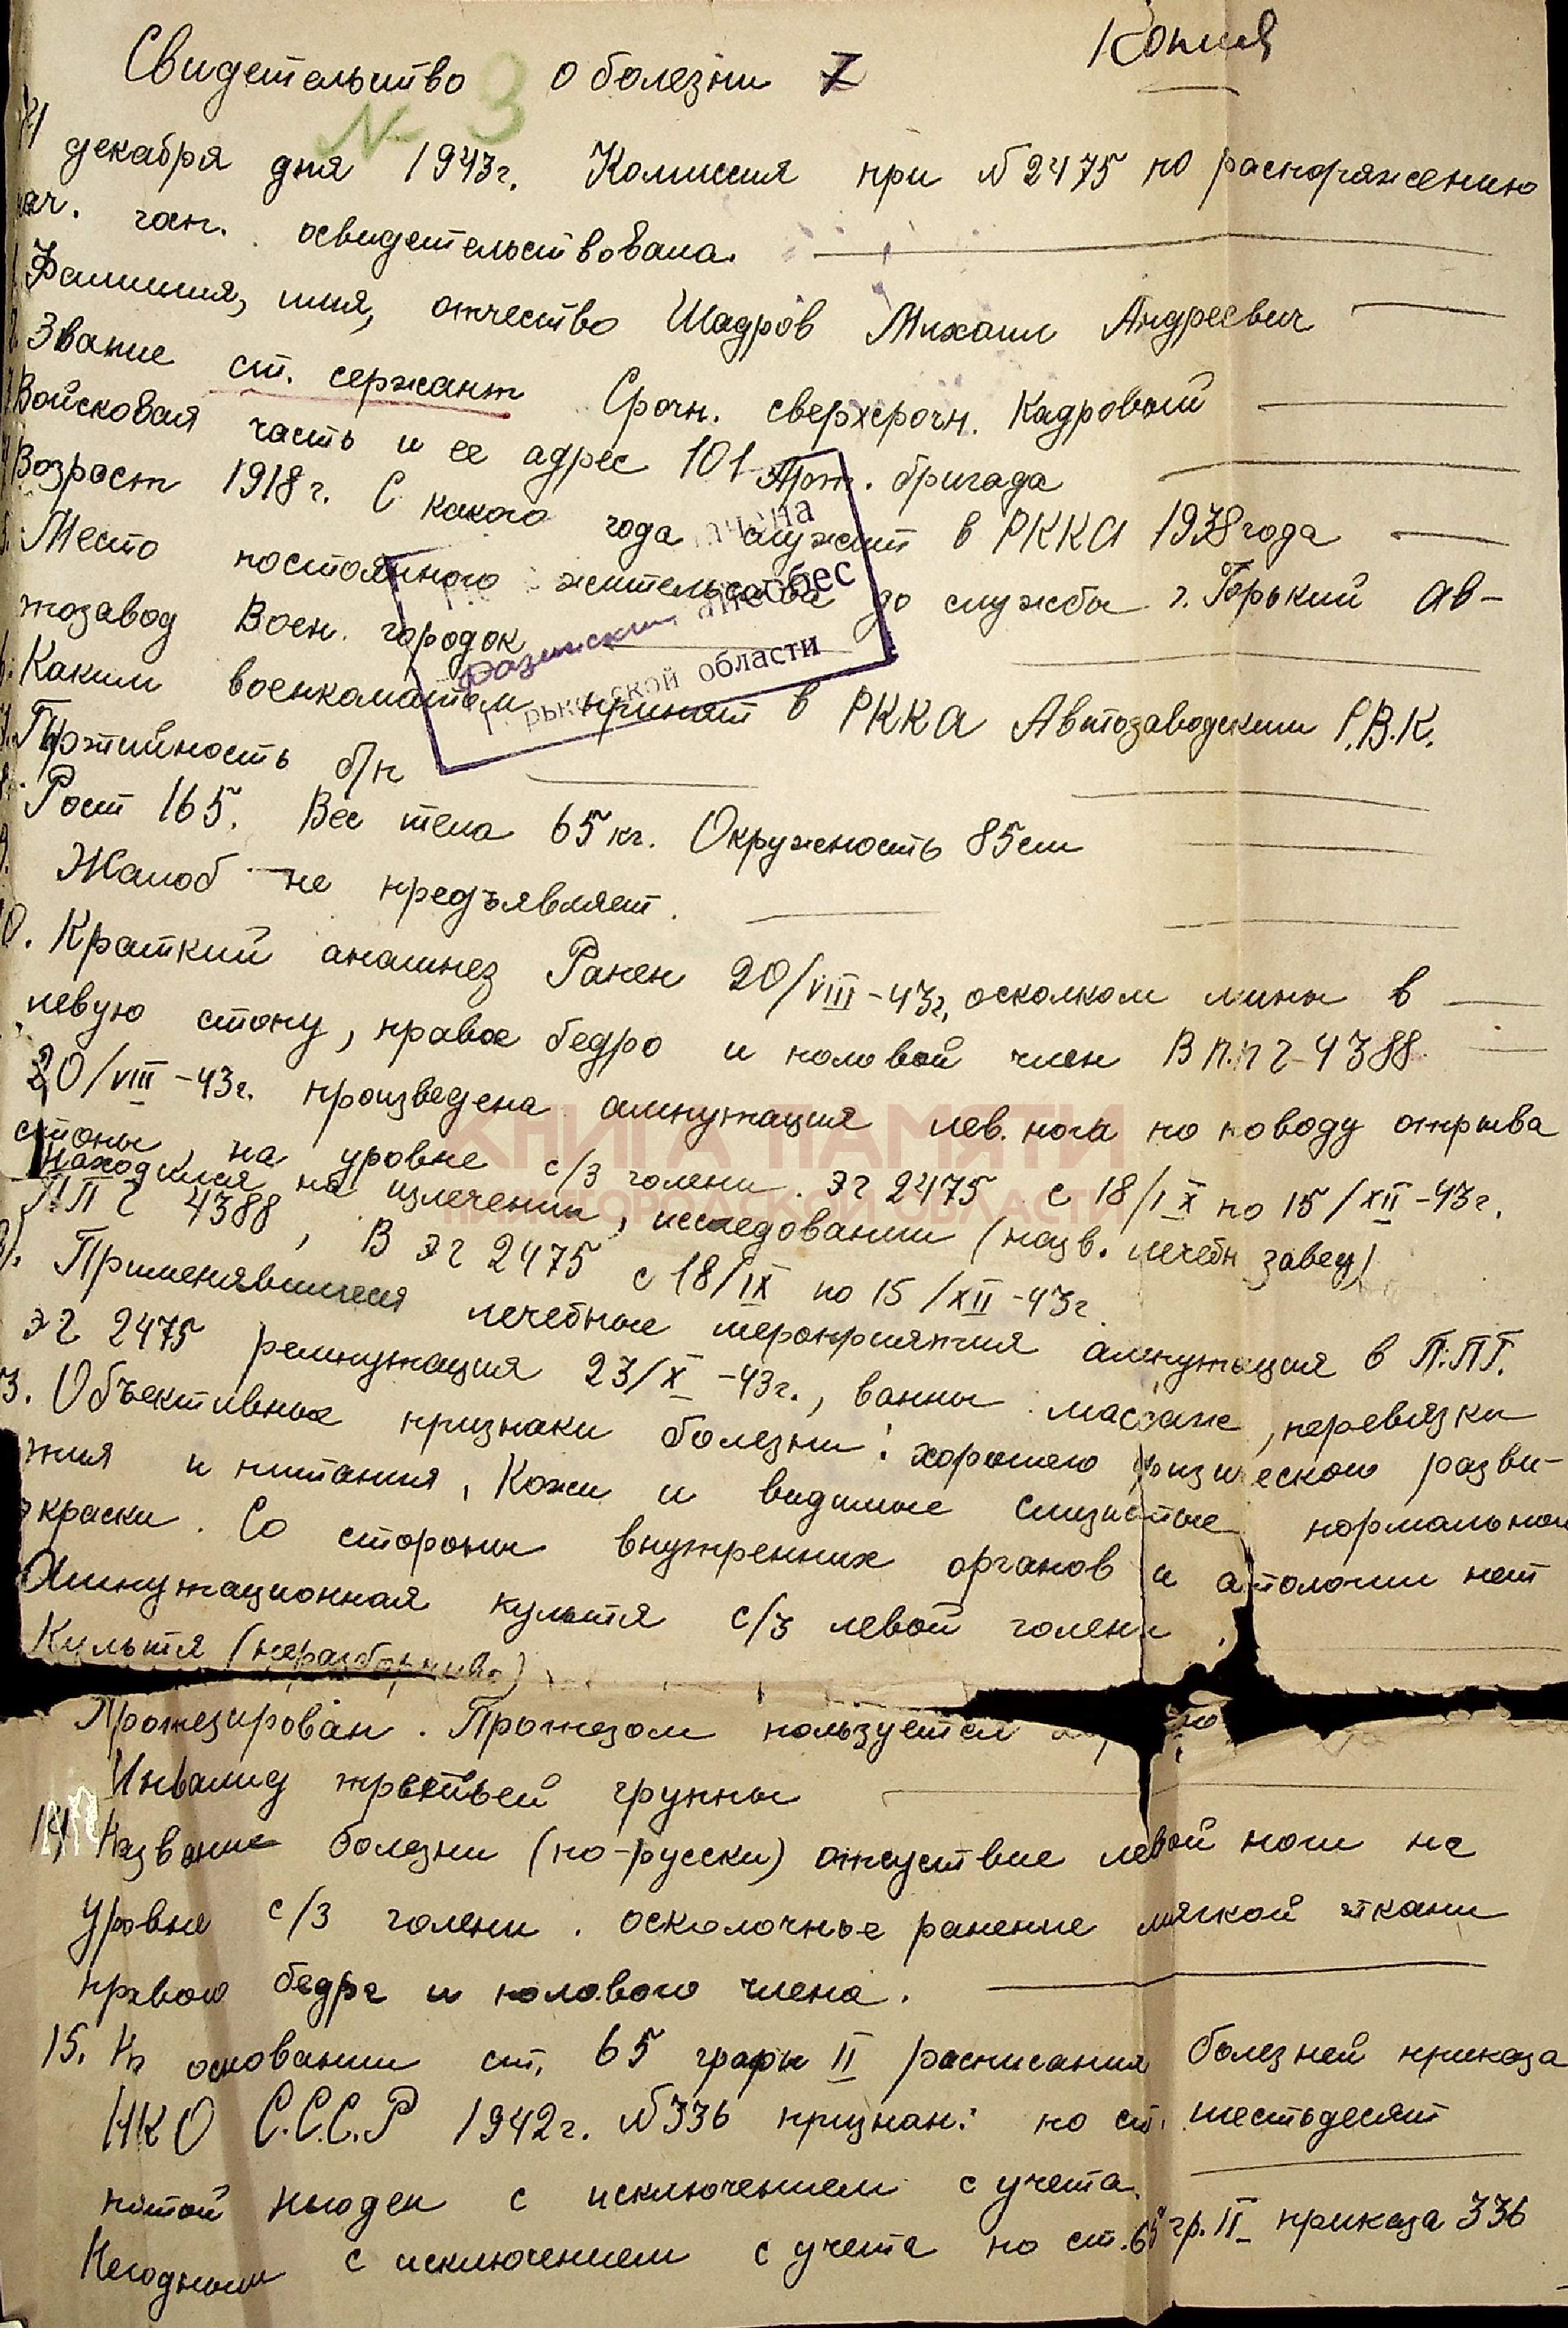 Копия
Свидетельство о болезни 7
№ 3
декабря дня 1943г. Комиссия при №2475 по распоряжению
нач. гар. освидетельствована.
Фамилия, имя, отчество Шадров Михаил Андреевич
Звание ст. сержант Срочн. сверхсрочн. Кадровый
Войсковая часть и ее адрес 101 Арт. бригада
Возраст 1918г. С какого года служит в РККА 1938 года
Место постоянного жительства до службы г. Горький Ав-
тозавод Воен. городок
Каким военкоматом принят в РККА Автозаводским Р.В.К.
Партийность б/п
Рост 165. Вес тела 65 кг. Окружность 85см
Жалоб не предъявляет.
10. Краткий анамнез Ранен 20/VIII-43г. осколком мины в
левую стопу, правое бедро и половой член В п.п г-4388.
20/VIII-43г. произведена ампутация лев. ноги по поводу отрыва
стопы на уровне с/3 голени. ЭГ 2475 с 18/IX по 15/XII-43г.
находился на излечении, исследовании (назв. лечебн завед)
П.П Г 4388, В ЭГ 2475 с 18/IX по 15/XII-43г.
Применявшиеся лечебные мероприятия ампутация в П.ПГ.
ЭГ 2475 реампутация 23/X-43г., ванны массаж, перевязки
13. Объективные признаки болезни: хорошего физического разви-
тия и питания, Кожи и видимые слизистые нормальной
окраски. Со стороны внутренних органов патологии нет
Ампутационная культя с/3 левой голени.
Культя (неразборчиво)
Протезирован. Протезом пользуется
Инвалид третьей группы
14. Название болезни (по-русски) отсуствие левой ноги на
уровне с/3 голени. осколочное ранение мягкой ткани
правого бедра и полового члена.
15. На основании ст. 65 графы II расписания болезней приказа
НКО С.С.С.Р 1942г. №336 признан: по ст. шестьдесят
пятой негоден с исключением с учета.
Негодным с исключением с учета по ст. 65 гр. II приказа 336
собес
Горьковской области
КНИГА ПАМЯТИ
НИЖЕГОРОДСКОЙ ОБЛАСТИ